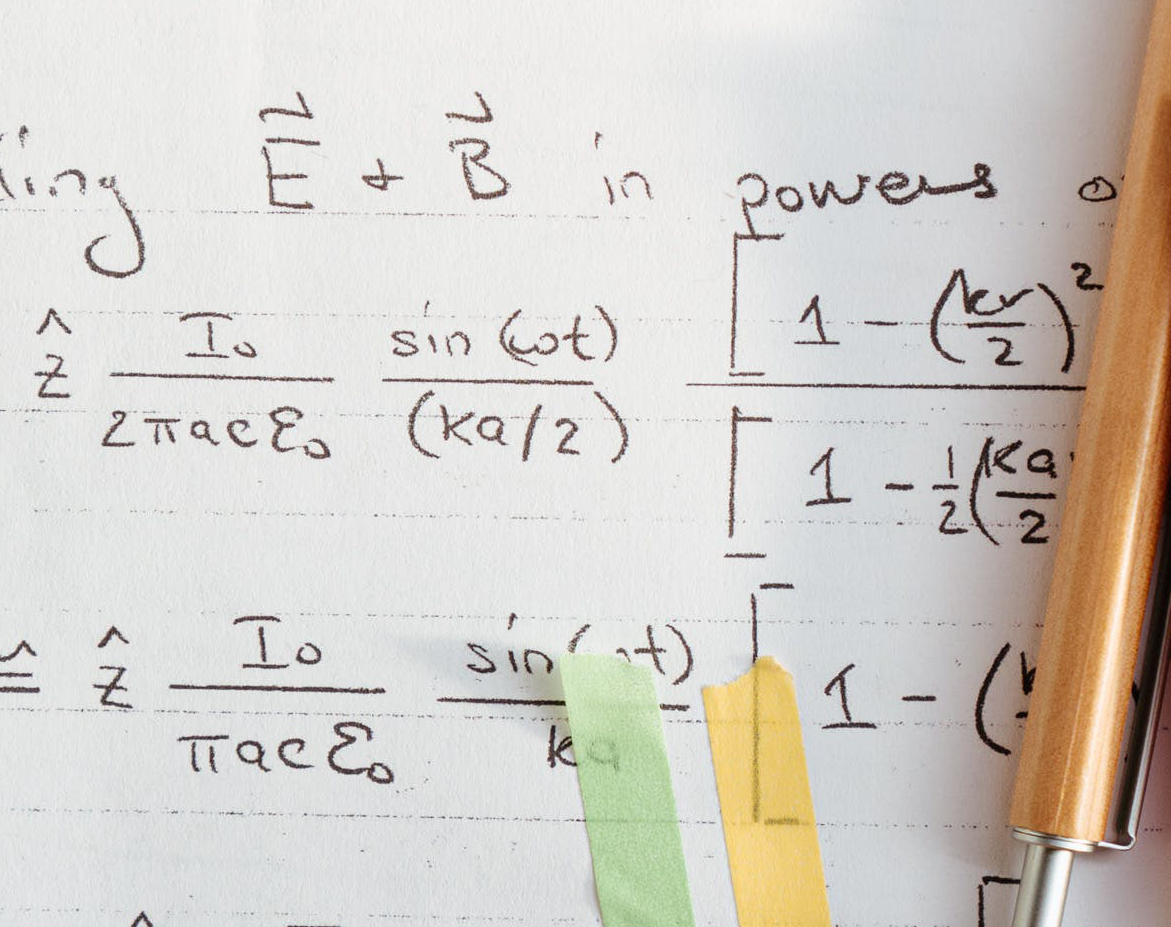 E⃗ + B⃗ in powers
ẑ I₀/(2πacε₀) sin(ωt)/(ka/2) [1 - (kr/2)²]/[1 - 1/2(ka/2
≅ ẑ I₀/(πacε₀) sin(ωt)/ka [1 - (